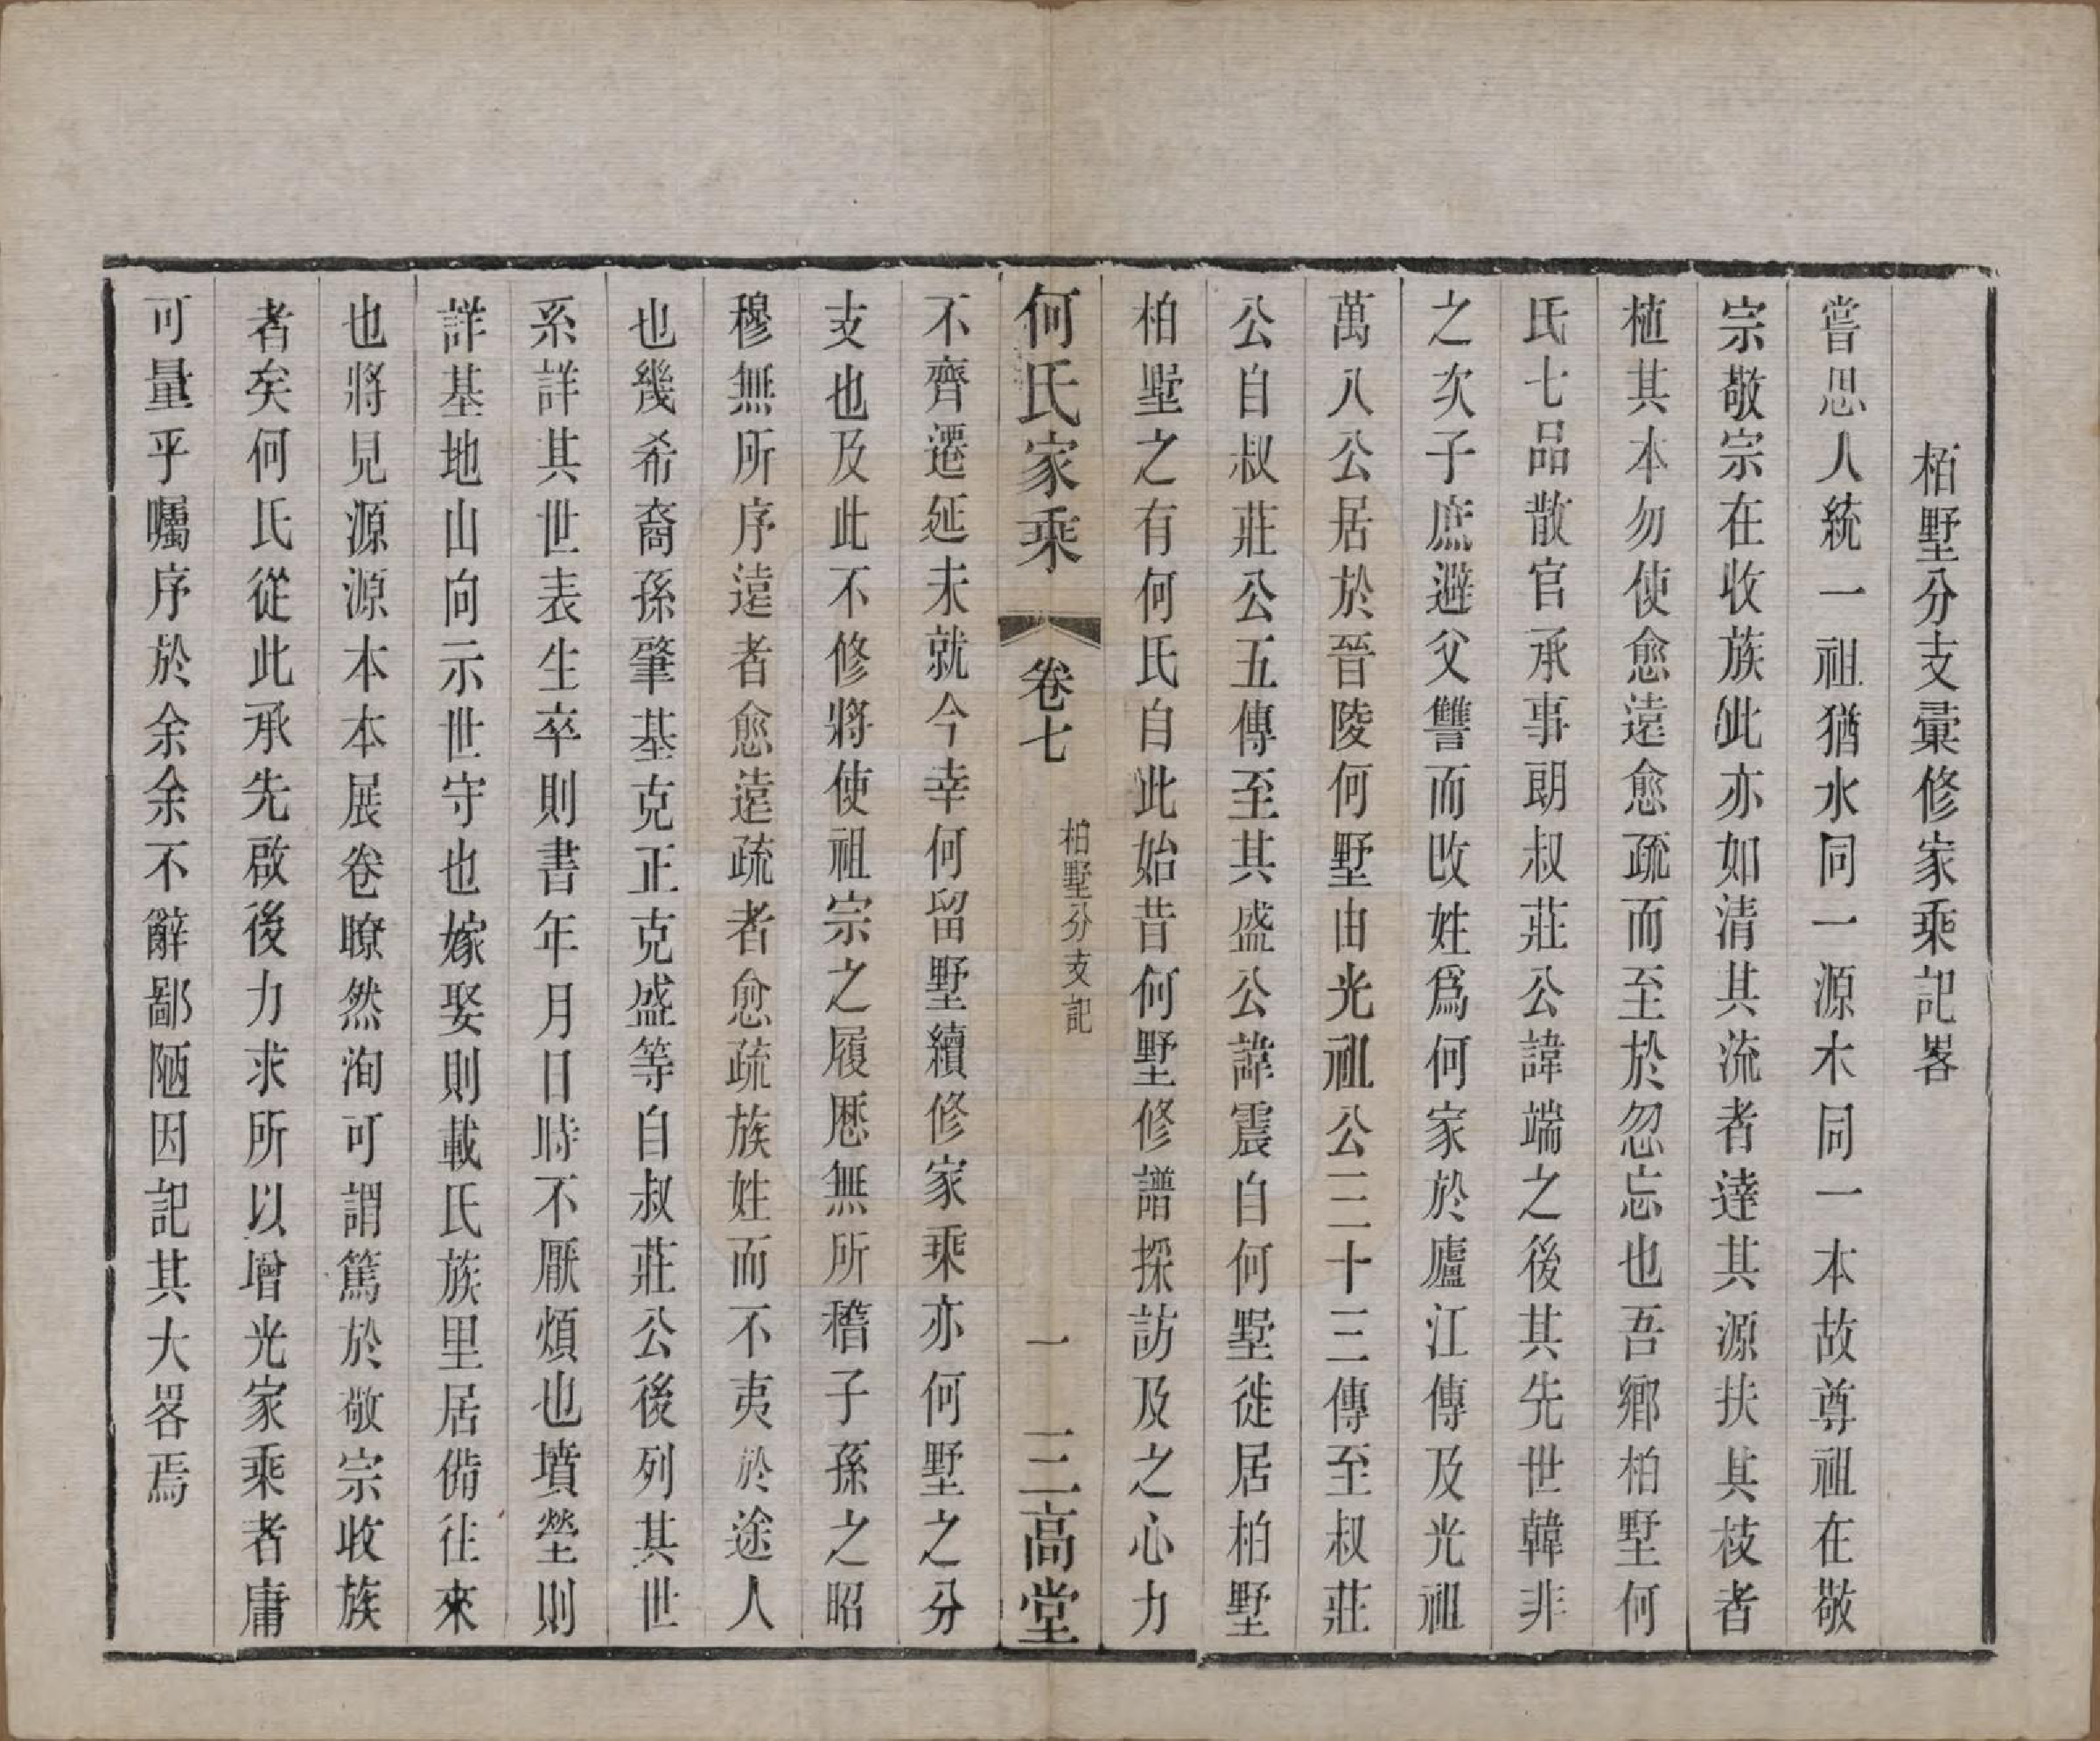 栢墅分支彚修家乘記畧
嘗思人統一祖猶水同一源木同一本故尊祖在敬
宗敬宗在收族此亦如清其流者達其源扶其枝者
植其本勿使愈遠愈疏而至於忽忘也吾鄉柏墅何
氏七品散官承事郎叔莊公諱端之後其先世韓非
之次子庶避父讐而改姓爲何家於廬江傳及光祖
萬八公居於晉陵何墅由光祖公三十三傳至叔莊
公自叔莊公五傳至其盛公諱震自何墅徙居柏墅
柏墅之有何氏自此始昔何墅修譜採訪及之心力
何氏家乘 卷七 柏墅分支記 一 三高堂
不齊遷延未就今幸何留墅續修家乘亦何墅之分
支也及此不修將使祖宗之履歷無所稽子孫之昭
穆無所序遠者愈遠疏者愈疏族姓而不夷於途人
也幾希裔孫肇基克正克盛等自叔莊公後列其世
系詳其世表生卒則書年月日時不厭煩也墳塋則
詳基地山向示世守也嫁娶則載氏族里居備徃來
也將見源源本本展卷瞭然洵可謂篤於敬宗收族
者矣何氏從此承先啟後力求所以增光家乘者庸
可量乎囑序於余余不辭鄙陋因記其大畧焉